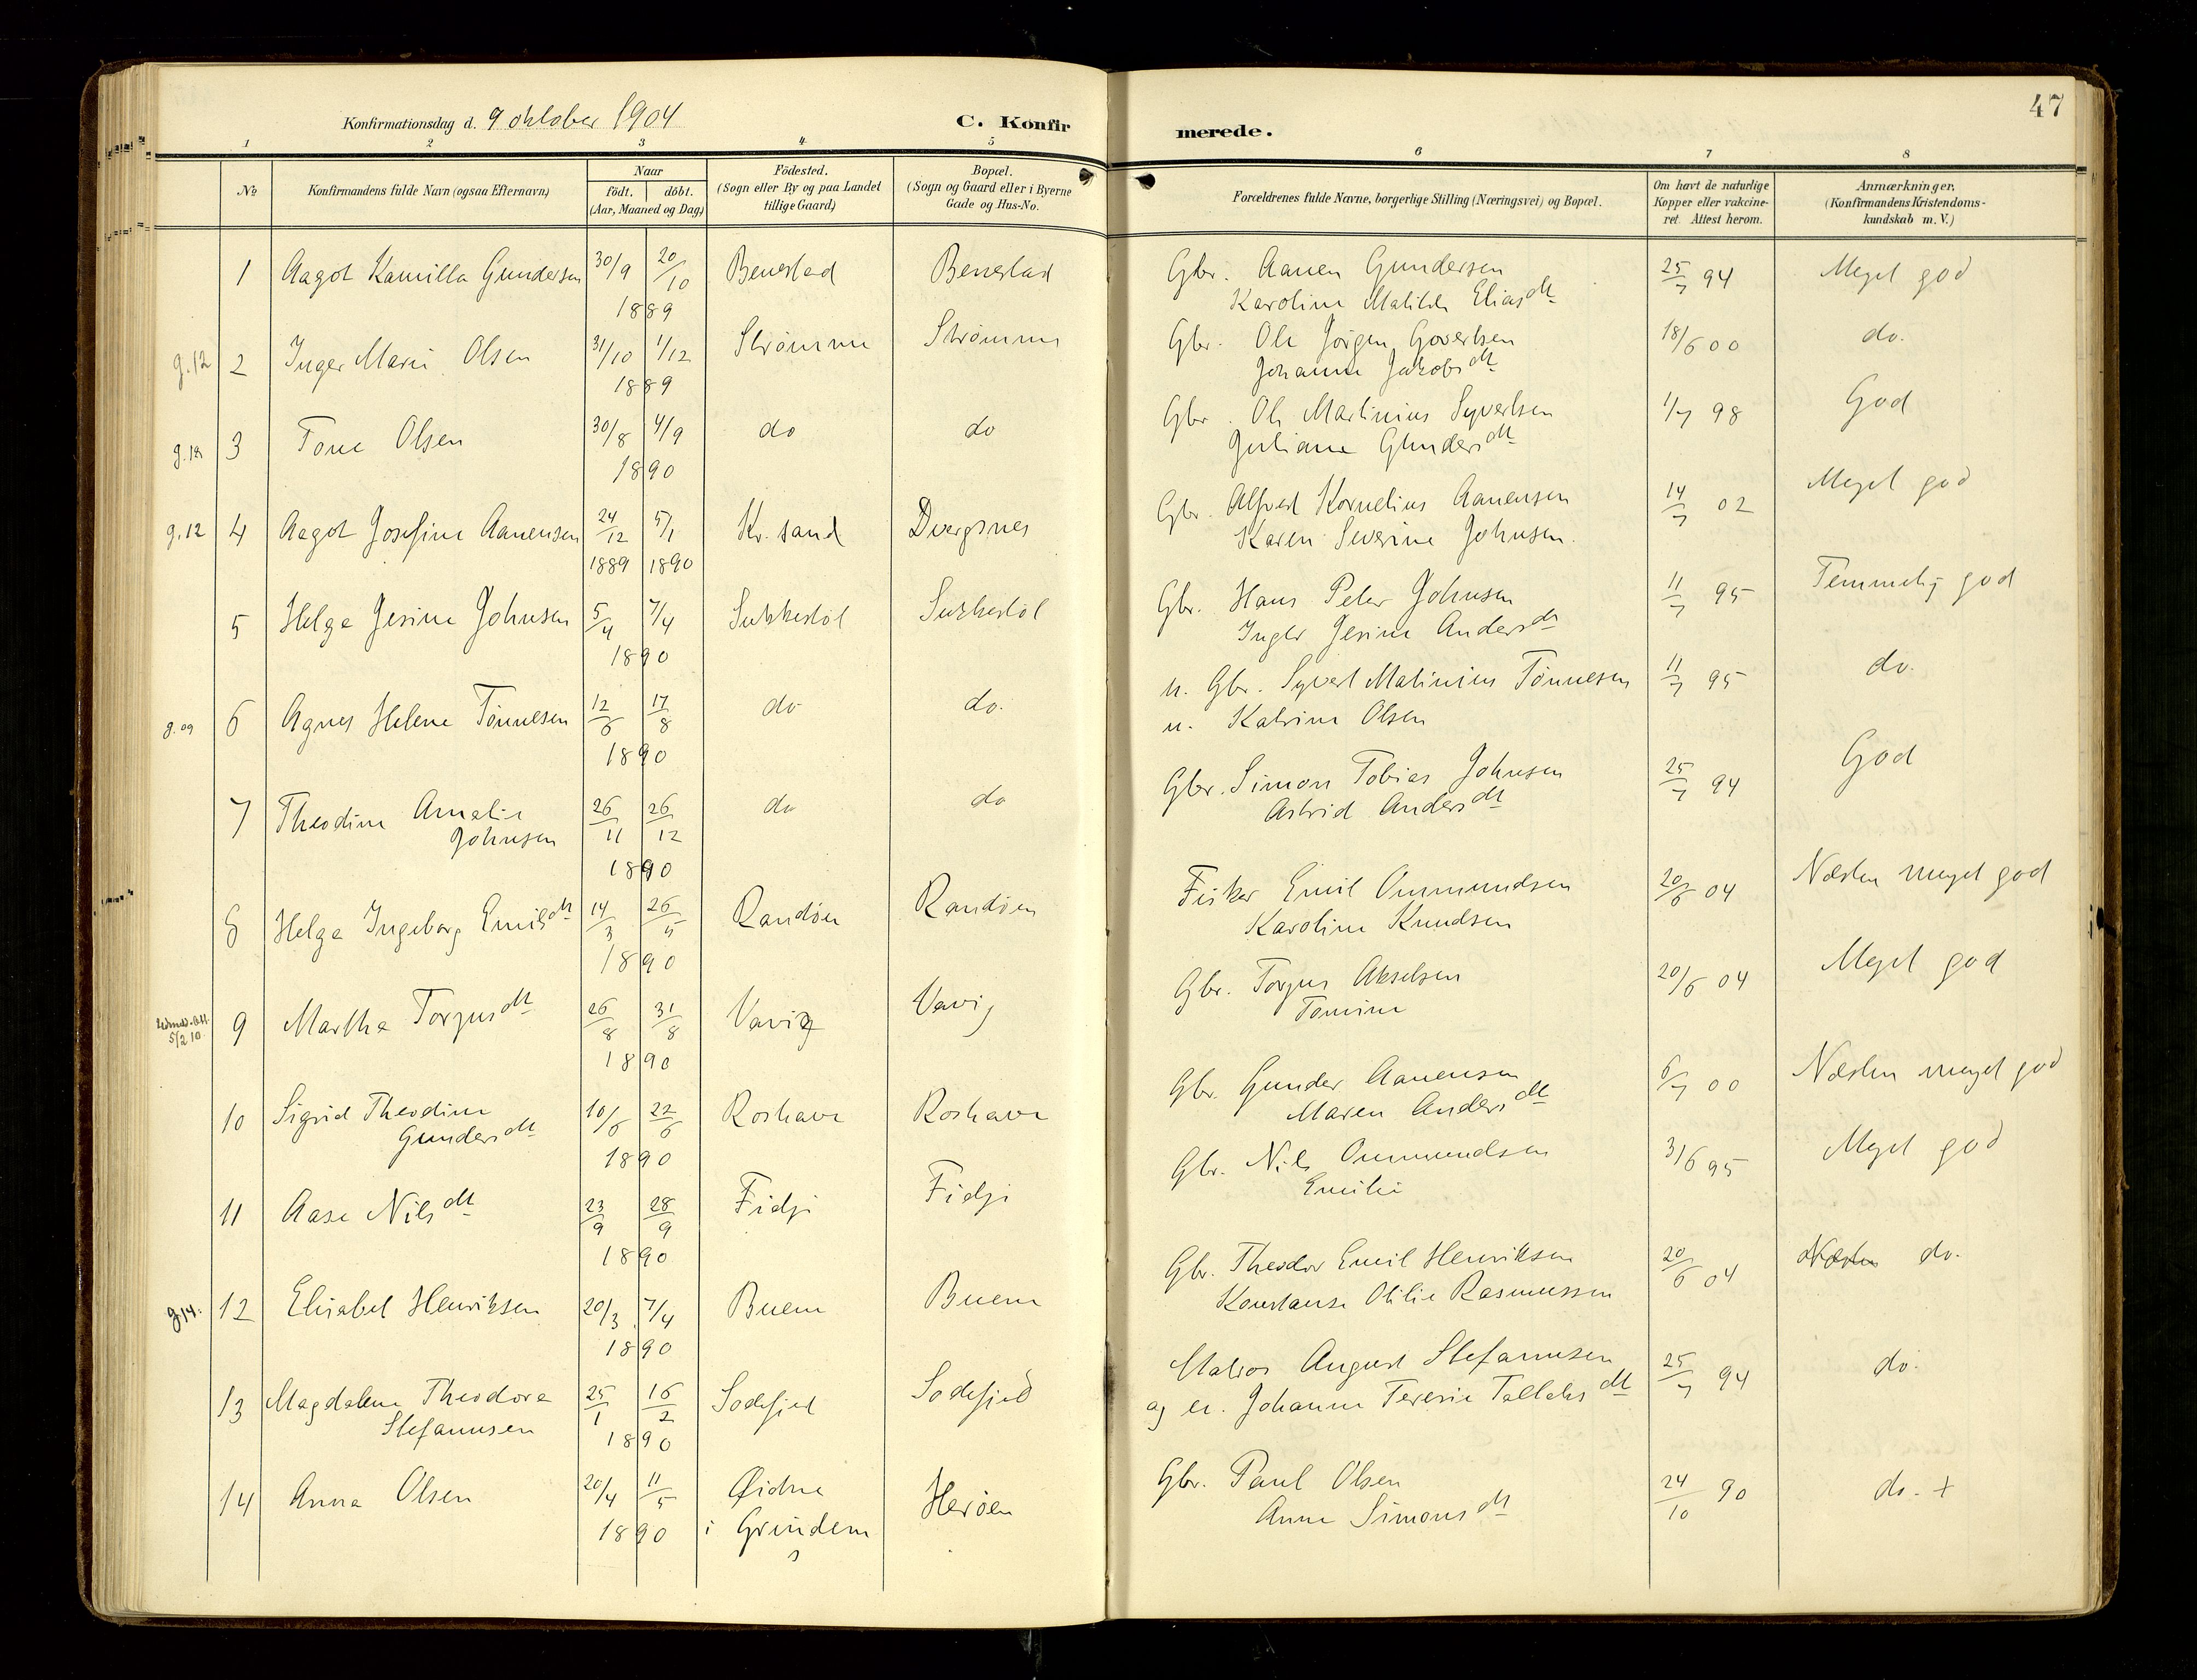 47
Konfirmationsdag d. 9 oktober 1904
C. Konfirmerede.
1 2 3 4 5 6 7 8
No
Konfirmandens fulde Navn (ogsaa Efternavn)
Naar
födt. döbt.
(Aar, Maaned og Dag)
Födested.
(Sogn eller By og paa Landet
tillige Gaard)
Bopæl.
(Sogn og Gaard eller i Byerne
Gade og Hus-No.
Forældrenes fulde Navne, borgerlige Stilling (Næringsvei) og Bopæl.
Om havt de naturlige
Kopper eller vakcine-
ret. Attest herom.
Anmærkninger.
(Konfirmandens Kristendoms-
kundskab m. V.)
1 Aagot Kamilla Gundersen 30/9 20/10 Benestad Benestad Gbr. Aanen Gundersen 25/7 94 Meget god
1889 Karoline Matilde Eliasdtt
g.12 2 Inger Marie Olsen 31/10 1/12 Strømme Strømme Gbr. Ole Jörgen Govertsen 18/6 00 do.
1889 Johanne Jakobsdtt
g.12 3 Tone Olsen 30/8 4/9 do do Gbr. Ole Martinius Syvertsen 1/7 98 God
1890 Juliane Gundersdtt
g.12 4 Aagot Josefine Aanensen 24/12 5/1 Kr.sand Dvergsnes Gbr. Alfred Kornelius Aanensen 14/7 02 Meget god
1889 1890 Karen Severine Johnsen.
5 Helga Jesine Johnsen 5/4 7/4 Sukkestöl Sukkestöl Gbr. Hans Peter Johnsen 11/7 95 Temmelig god
1890 Inger Jesine Andersdtt
g.09 6 Agnes Helene Tönnesen 12/6 17/8 do do. u. Gbr. Syvert Matinius Tönnesen 11/7 95 do.
1890 u. Katrine Olsen
7 Theodine Amalie 26/11 26/12 do do Gbr. Simon Tobias Johnsen 25/7 94 God
Johnsen 1890 Astrid Andersdtt
8 Helga Ingeborg Emilsdtt 14/3 26/5 Randöen Randöen Fisker Emil Ommundsen 20/6 04 Næsten meget god
1890 Karoline Knudsen
5/2 10 9 Martha Torjusdtt 26/8 31/8 Vavig Vavig Gbr. Torjus Akselsen 20/6 04 Meget god
1890 Tomine
10 Sigrid Theodine 10/6 22/6 Roshave Roshave Gbr. Gunder Aanensen 6/7 00 Næsten meget god
Gundersdtt 1890 Maren Andersdtt
11 Aase Nilsdtt 23/9 28/9 Fidje Fidje Gbr. Nils Ommundsen 3/6 95 Meget god
1890 Emilie
g14. 12 Elisabet Henriksen 20/3 7/4 Buene Buene Gbr. Theodor Emil Henriksen 20/6 04 Næsten do.
1890 Konstanse Otilie Rasmussen
13 Magdalene Theodora 25/1 16/2 Sodefjed Sodefjed Matros August Stefanusen 25/7 94 do.
Stefanusen 1890 Johanne Teresie Tallaksdtt
14 Anna Olsen 20/4 11/5 Øidne Herøen Gbr. Paul Olsen 24/10 90 do. +
1890 i Grindem Anne Simonsdtt